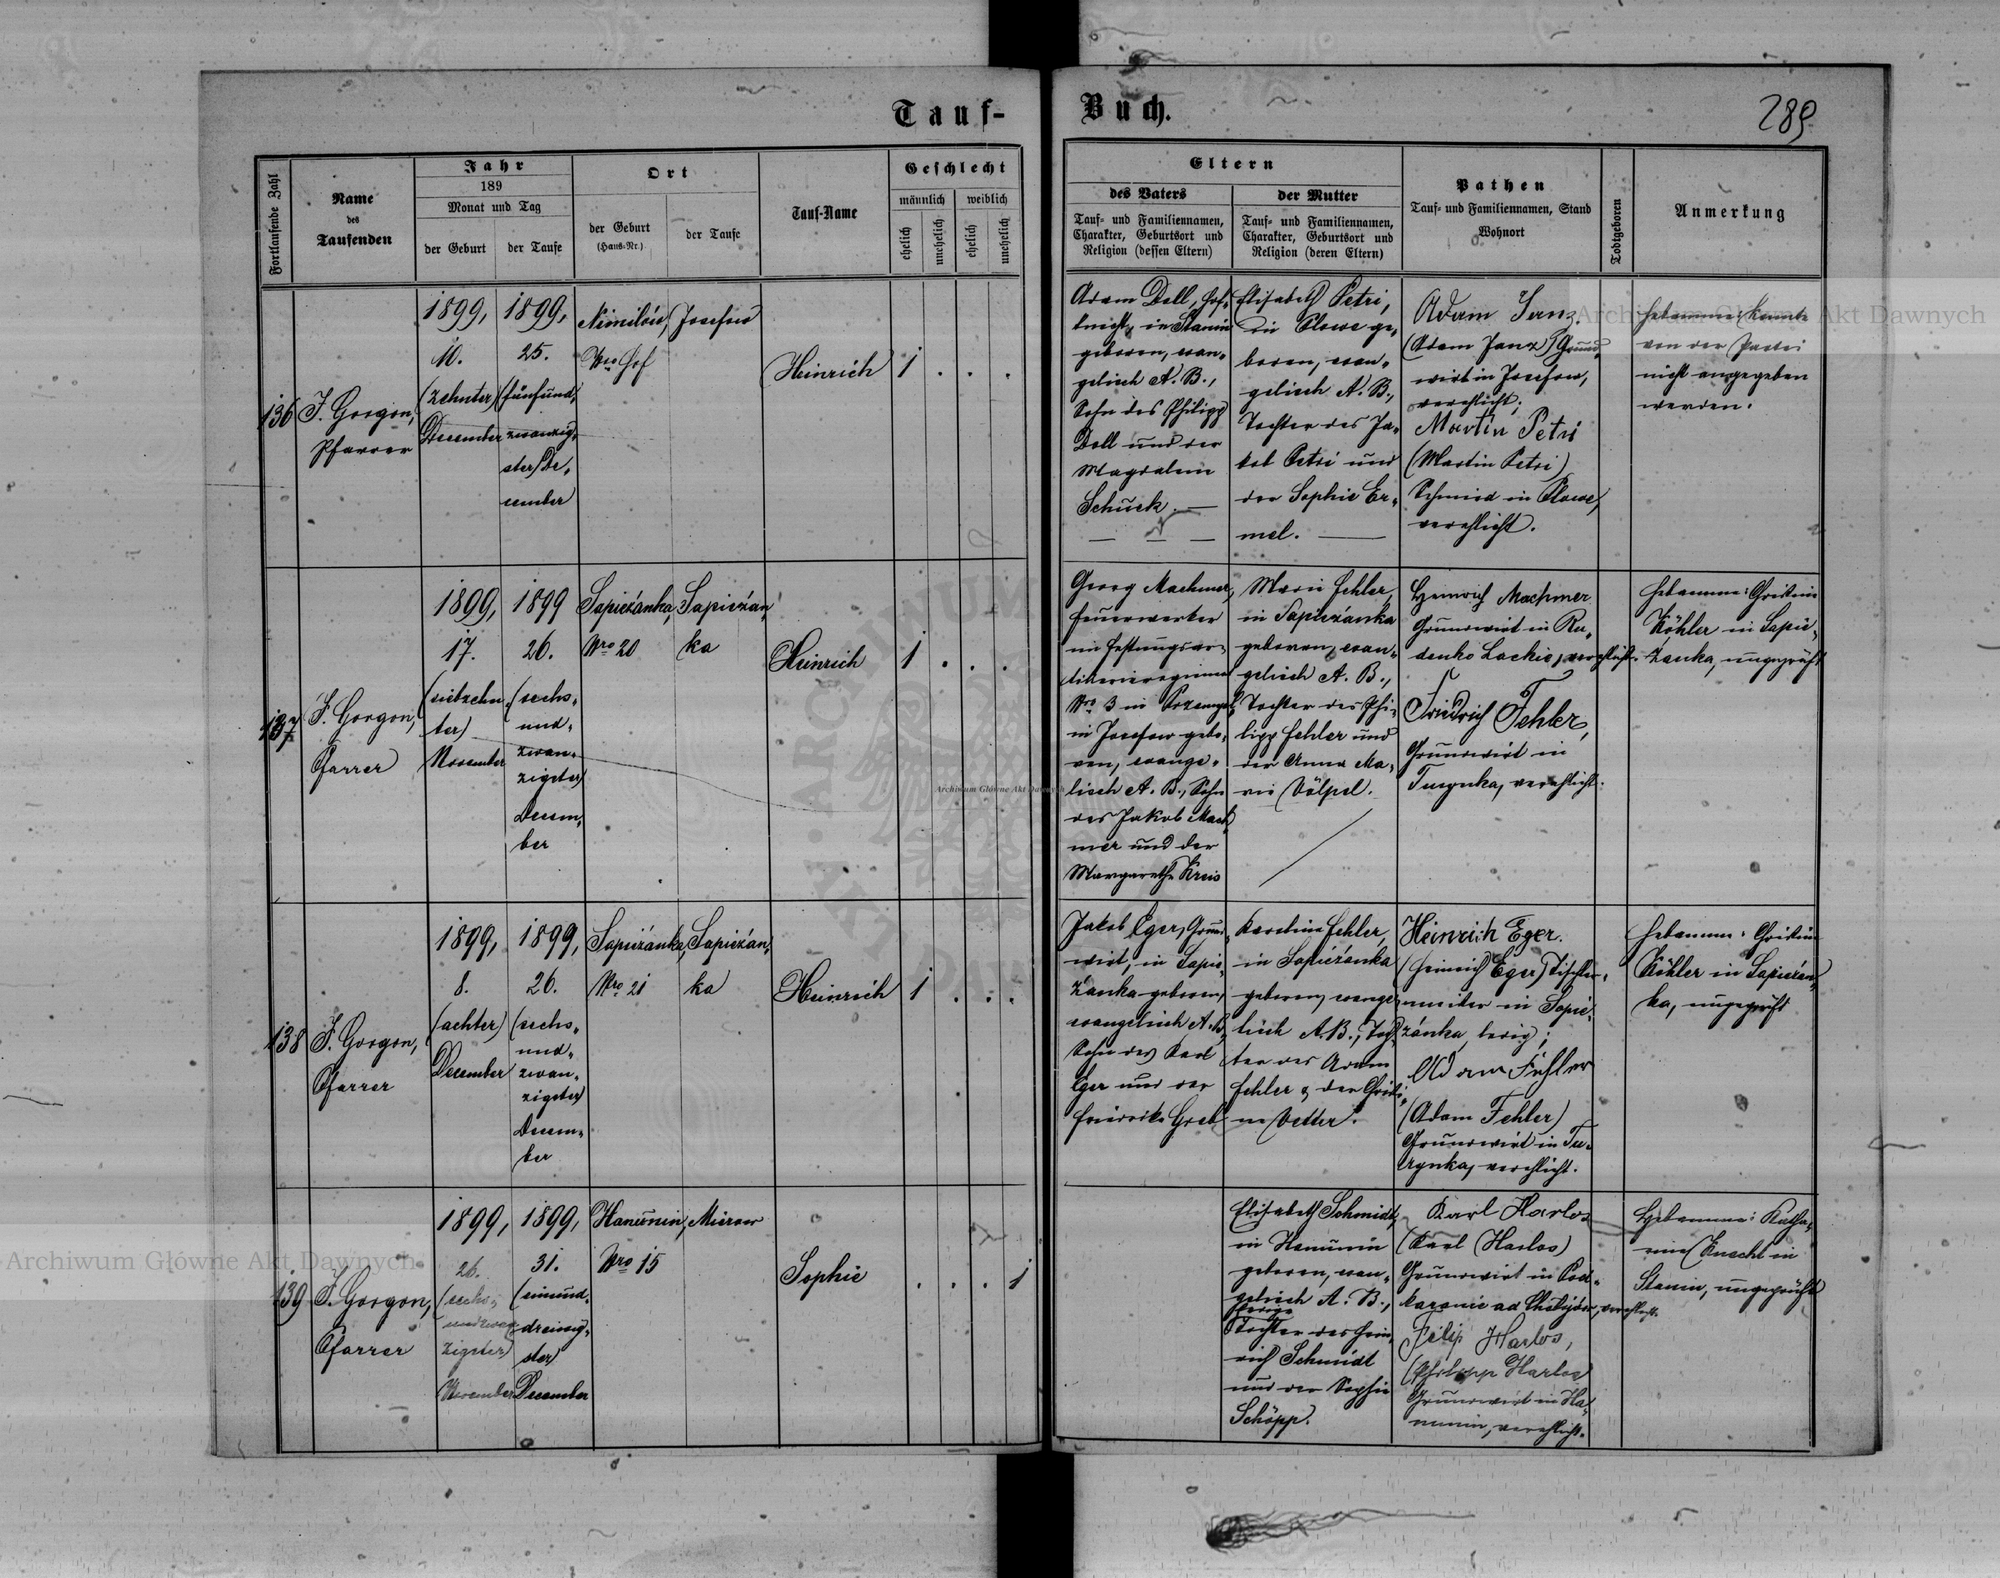 Tauf-
Buch.
289
Fortlaufende Zahl
Name
des
Taufenden
Jahr
189
Monat und Tag
der Geburt
der Taufe
Ort
der Geburt
(Haus-Nr.)
der Taufe
Tauf-Name
Geschlecht
männlich
weiblich
ehelich
unehelich
ehelich
unehelich
Eltern
des Vaters
Tauf- und Familiennamen,
Charakter, Geburtsort und
Religion (dessen Eltern)
der Mutter
Tauf- und Familiennamen,
Charakter, Geburtsort und
Religion (deren Eltern)
Pathen
Tauf- und Familiennamen, Stand
Wohnort
Todtgeboren
Anmerkung
136
J. Gorgon,
Pfarrer
1899,
10.
(zehnter)
December
1899,
25.
(fünfund,
zwanzig,
ster) De,
cember
Nimilów,
Nro Hof
Josefow
Heinrich
1 . . .
Adam Doll, Hof,
knecht, in Stanin
geboren, evan,
gelisch A. B.,
Sohn des Philipp
Doll und der
Magdalena
Schuck. —
Elisabeth Petri,
in Plowe ge,
boren, evan,
gelisch A. B.,
Tochter des Ja,
kob Petri und
der Sophie Er,
mel. —
Adam Janz.
(Adam Janz) Grund,
wirt in Josefow,
verehlicht;
Martin Petri
(Martin Petri)
Schmied in Plowe,
verehlicht.
Hebamme: konnte
von der Partei
nicht angegeben
werden.
137
J. Gorgon,
Pfarrer
1899,
17.
(siebzehn,
ter)
November
1899
26.
(sechs,
und,
zwan,
zigster)
Decem,
ber
Sapieżanka,
Nro 20
Sapieżan,
ka
Heinrich
1 . . .
Georg Machmer,
Feuerwerker
im Festungsar,
tillerieregiment
Nro 3 in Przemysl,
in Josefow gebo,
ren, evange,
lisch A. B., Sohn
des Jakob Mach,
mer und der
Margarethe Kreis
Marie Fehler,
in Sapieżanka
geboren, evan,
gelisch A. B.,
Tochter des Phi,
lipp Fehler und
der Anna Ma,
rie Völpel.
Heinrich Machmer
Grundwirt in Ru,
denko Lackie, verehlicht.
Friedrich Fehler,
Grundwirt in
Turynka, verehlicht.
Hebamme: Christine
Köhler in Sapie,
żanka, ungeprüft
138
J. Gorgon,
Pfarrer
1899,
8.
(achter)
December
1899,
26.
(sechs,
und,
zwan,
zigster)
Decem,
ber
Sapieżanka,
Nro 21
Sapieżan,
ka
Heinrich
1 . . .
Jakob Eger, Grund,
wirt, in Sapie,
żanka geboren,
evangelisch A. B.,
Sohn des Karl
Eger und der
Friedrike Greb
Karoline Fehler,
in Sapieżanka
geboren, evange,
lisch A. B., Toch,
ter des Adam
Fehler & der Christi,
ne Vetter.
Heinrich Eger.
(Heinrich Eger) Tischler,
meister in Sapie,
żanka, ledig;
Adam Fehler
(Adam Fehler)
Grundwirt in Tu,
rynka, verehlicht.
Hebamme: Christine
Köhler in Sapieżan,
ka, ungeprüft
139
J. Gorgon,
Pfarrer
1899,
26.
(sechs,
undzwan,
zigster)
November
1899,
31.
(einund,
dreissig,
ster)
December
Hanunin,
Nro 15
Mierow
Sophie
. . . 1
Elisabeth Schmidt,
in Hanunin
geboren, evan,
gelisch A. B.,
ledige
Tochter des Hein,
rich Schmidt
und der Sophie
Schöpp.
Karl Harlos
(Karl Harlos)
Grundwirt in Pod,
Filip Harlos,
(Philipp Harlos)
Grundwirt in Ha,
nunin, verehlicht.
Hebamme: Katha,
rine Knecht in
Stanin, ungeprüft
Archiwum Główne Akt Dawnych
Archiwum Główne Akt Dawnych
Archiwum Główne Akt Dawnych